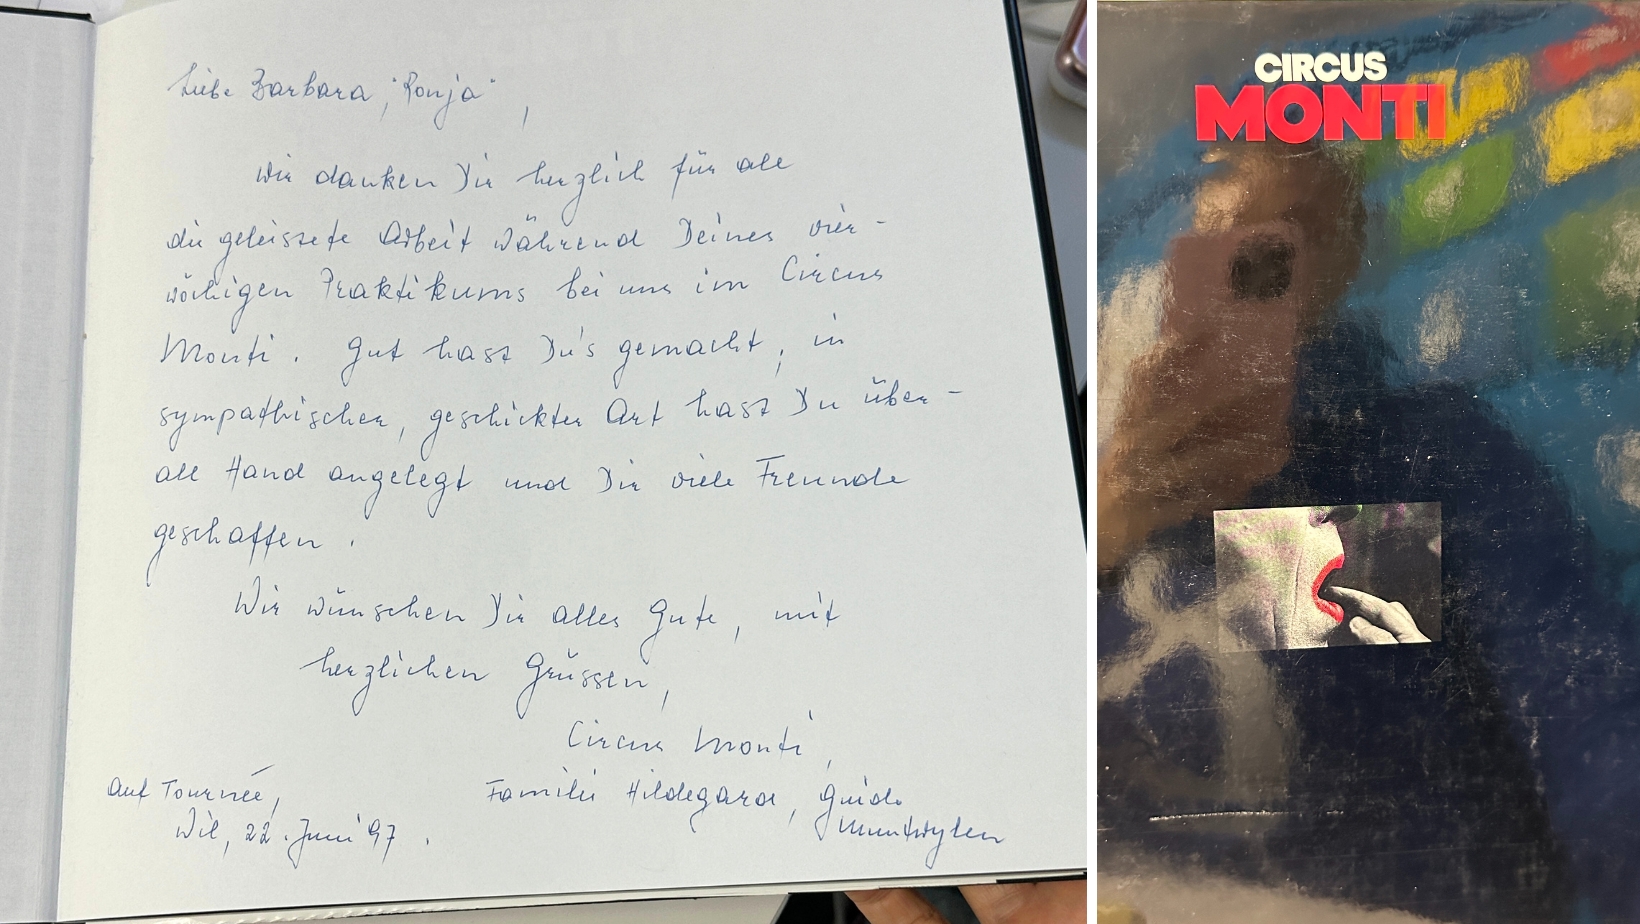 Liebe Barbara, "Ronja",
Wir danken Dir herzlich für all
die geleistete Arbeit während Deines vier-
wöchigen Praktikums bei uns im Circus
Monti. Gut hast Du's gemacht, in
sympathischer, geschickter Art hast Du über-
all Hand angelegt und Dir viele Freunde
geschaffen.
Wir wünschen Dir alles Gute, mit
herzlichen Grüssen,
Circus Monti,
Familie Hildegard, Guido
Muntwyler
Auf Tournée,
Wil, 22. Juni 97.
CIRCUS
MONTI